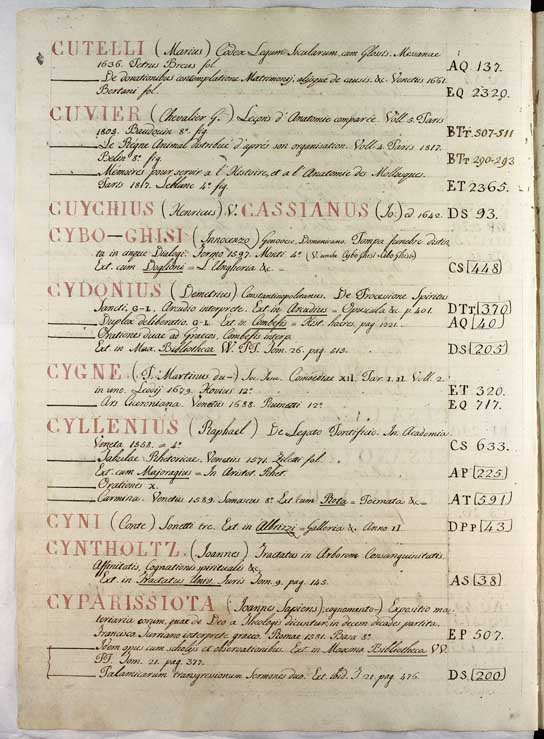 CUTELLI (Marius) Codex Legum Sicularum, cum Glossis. Messanae
1636. Petrus Breus fol. AQ 137.
De donationibus contemplatione Matrimonij, aliisque de causis. &c. Venetiis 1661.
Bertani fol. EQ 2329.
CUVIER (Chevalier G.) Leçons d'Anatomie comparée. Voll. 5. Paris
1805. Baudouin 8° fig. BTT. 507-511
Le Règne Animal distribué d'après son organisation. Voll. 4. Paris 1817.
Belin 8° fig. BTT 290-293
Mémoires pour servir a l'Histoire, et a l'Anatomie des Mollusques.
Paris 1817. Leblanc 4° fig. ET 2365.
CUYCHIUS (Henricus) V. CASSIANUS (Jo.) ed 1642. DS 93.
CYBO-GHISI (Innocenzo) Genovese, Domenicano. Pompa funebre distin
ta in cinque Dialogi. Fermo 1597. Mont. 4° (V. anche Cybo Ghisi
Ext. cum Doglioni = L'Ungheria &c. = CS 448
CYDONIUS (Demetrius) Constantinopolitanus. De Processione Spiritus
Sancti. G-L. Arcudio interprete. Ext. in Arcudius = Opuscula &c p. 401. DTT 370
Duplex deliberatio G-L. Ext. in Combefis = Hist. haeres. pag. 1221. AQ 40
Orationes duae ad Graecos, Combefis interp.
Ext. in Max. Bibliotheca VV. PP. Tom. 26. pag. 513. DS 205
CYGNE (P. Martinus du-) Soc. Jesu. Comoediae XII. Par. I. II. Voll. 2.
in uno. Leodij 1679. Hovius 12° ET 320.
Ars Ciceroniana. Venetiis 1688. 12° EQ 717.
CYLLENIUS (Raphael) De Legato Pontificio. In Academia
Veneta 1558. = 4° CS 633.
Tabulae Rhetoricae. Venetiis 1571. Zileti fol.
Ext. cum Majoragius = In Aristot. Rhet. AP 225
Orationes X.
Carmina. Venetiis 1589. Somascus 8° Ext. cum Rota = Poemata &c = AT 591
CYNI (Conte) Sonetti tre. Ext. in Albrizzi = Galleria &. Anno II DPP 43
CYNTHOLTZ. (Joannes) Tractatus in Arborem Consanguinitatis,
Affinitatis, Cognationis spiritualis &c.
Ext. in Tractatus Univ. Juris Tom. 9. pag. 145. AS 38
CYPARISSIOTA (Joannes Sapiens, cognomento-) Expositio ma
teriaria eorum, quae de Deo a Theologis dicuntur in decem decades partita,
Francisco Turriano interprete graeco. Romae 1581. Basa 8° EP 507.
Idem opus cum scholiis et observationibus. Ext. in Maxima Bibliotheca VV.
PP. Tom. 21. pag. 377.
Palamiticarum transgressionum sermones duo. Ext. ibid. T. 21. pag. 476. DS 200